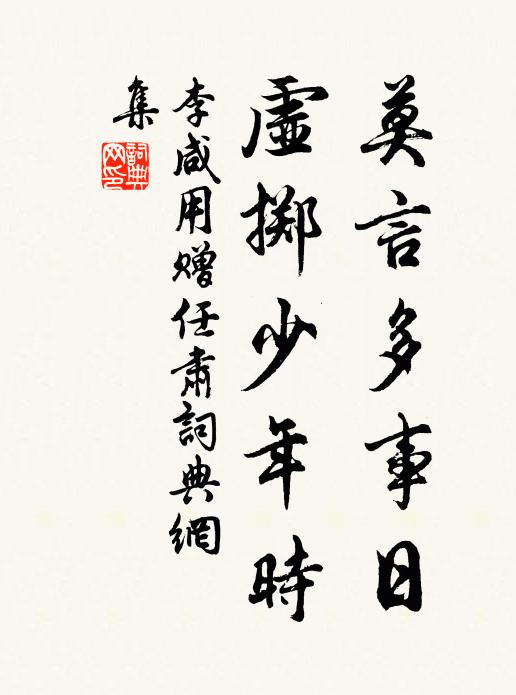 莫言多事日
虚擲少年時
李咸用赠任肃詞典網
集
詞典
网印